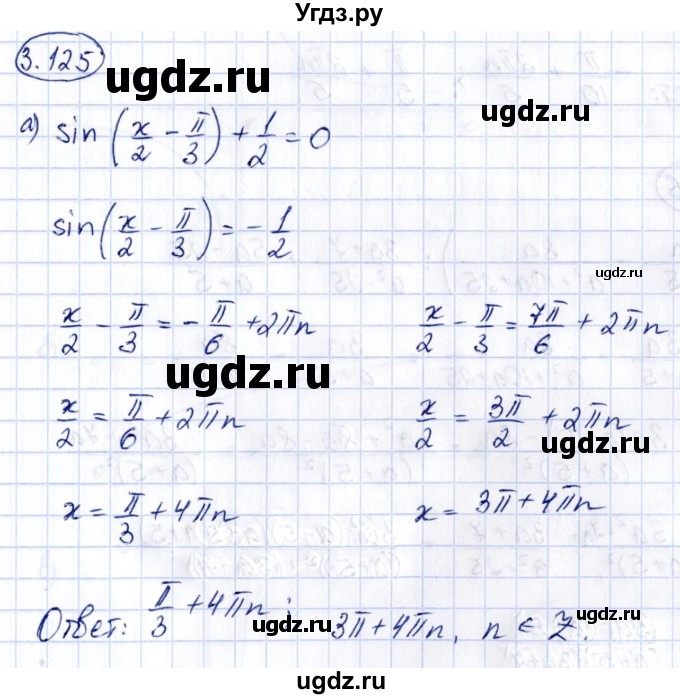 Угдз.ру
3.125
ugdz.ru
а) sin(x/2 - π/3) + 1/2 = 0
ugdz.ru
sin(x/2 - π/3) = -1/2
ugdz.ru
x/2 - π/3 = -π/6 + 2πn x/2 - π/3 = 7π/6 + 2πn
ugdz.ru
x/2 = π/6 + 2πn x/2 = 3π/2 + 2πn
ugdz.ru
x = π/3 + 4πn x = 3π + 4πn
ugdz.ru
Ответ: π/3 + 4πn; 3π + 4πn, n ∈ Z.
ugdz.ru
ugdz.ru